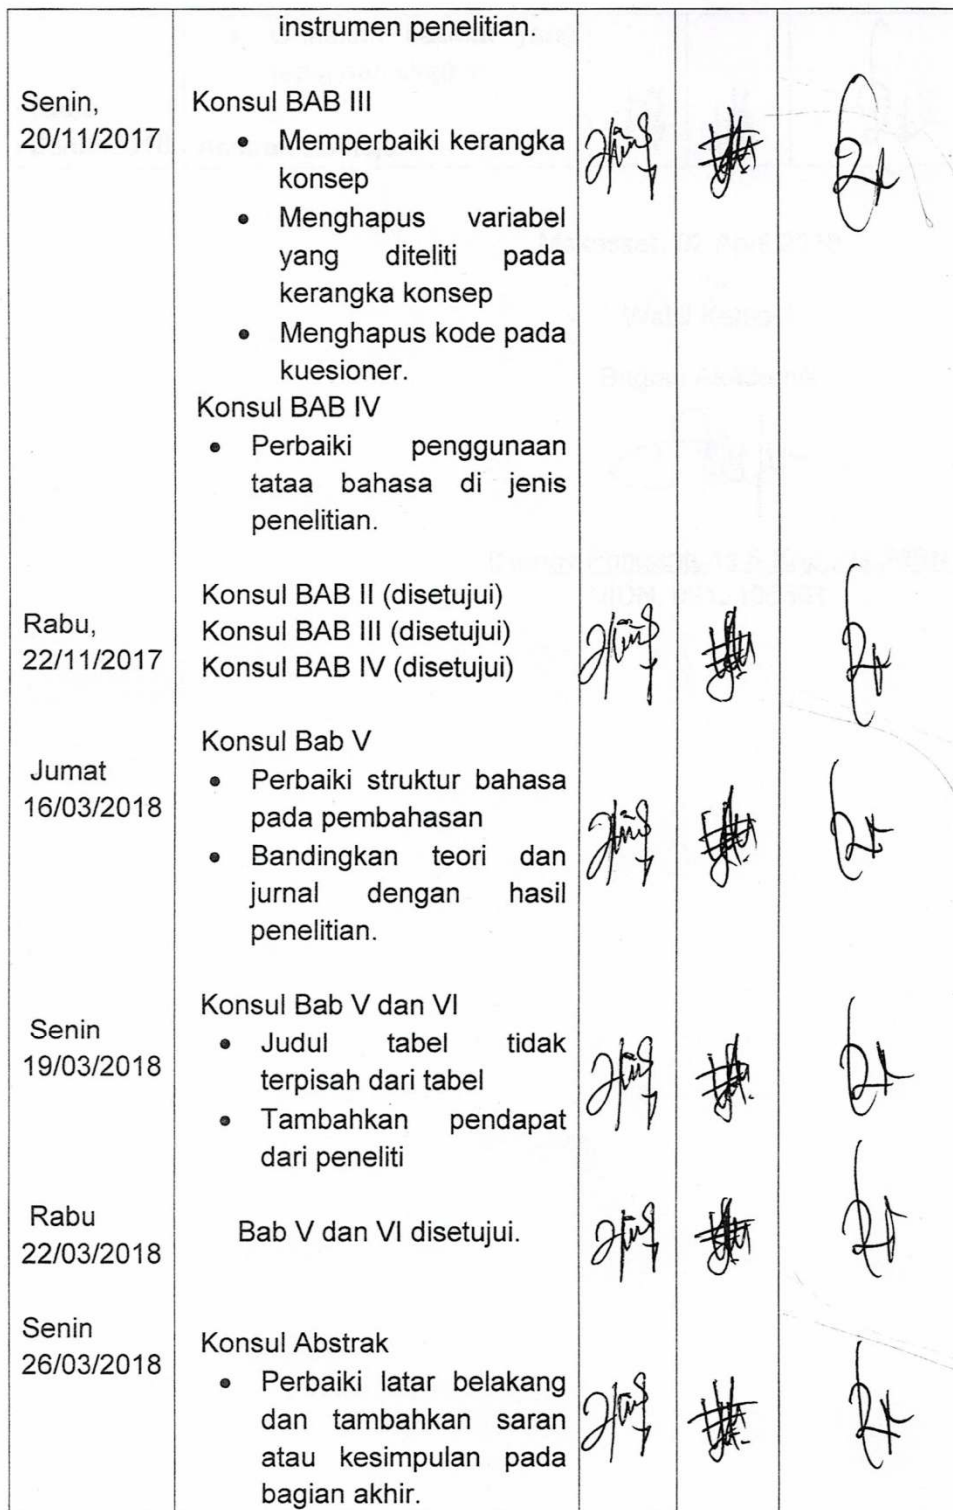 instrumen penelitian.
Senin,
20/11/2017
Konsul BAB III
• Memperbaiki kerangka
konsep
• Menghapus variabel
yang diteliti pada
kerangka konsep
• Menghapus kode pada
kuesioner.
Konsul BAB IV
• Perbaiki penggunaan
tataa bahasa di jenis
penelitian.
Rabu,
22/11/2017
Konsul BAB II (disetujui)
Konsul BAB III (disetujui)
Konsul BAB IV (disetujui)
Jumat
16/03/2018
Konsul Bab V
• Perbaiki struktur bahasa
pada pembahasan
• Bandingkan teori dan
jurnal dengan hasil
penelitian.
Senin
19/03/2018
Konsul Bab V dan VI
• Judul tabel tidak
terpisah dari tabel
• Tambahkan pendapat
dari peneliti
Rabu
22/03/2018
Bab V dan VI disetujui.
Senin
26/03/2018
Konsul Abstrak
• Perbaiki latar belakang
dan tambahkan saran
atau kesimpulan pada
bagian akhir.